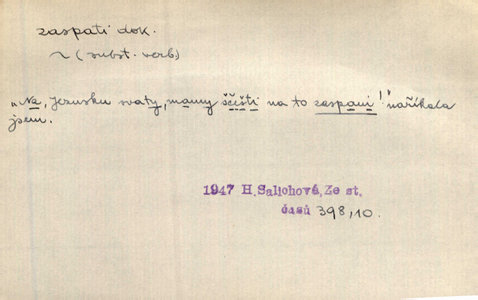 zaspati dok.
~ (subst. verb.)
„Na, Jezusku svaty, mamy ščišti na to zaspani!" naříkala
jsem.
1947 H.Salichová, Ze st.
časů 398,10.